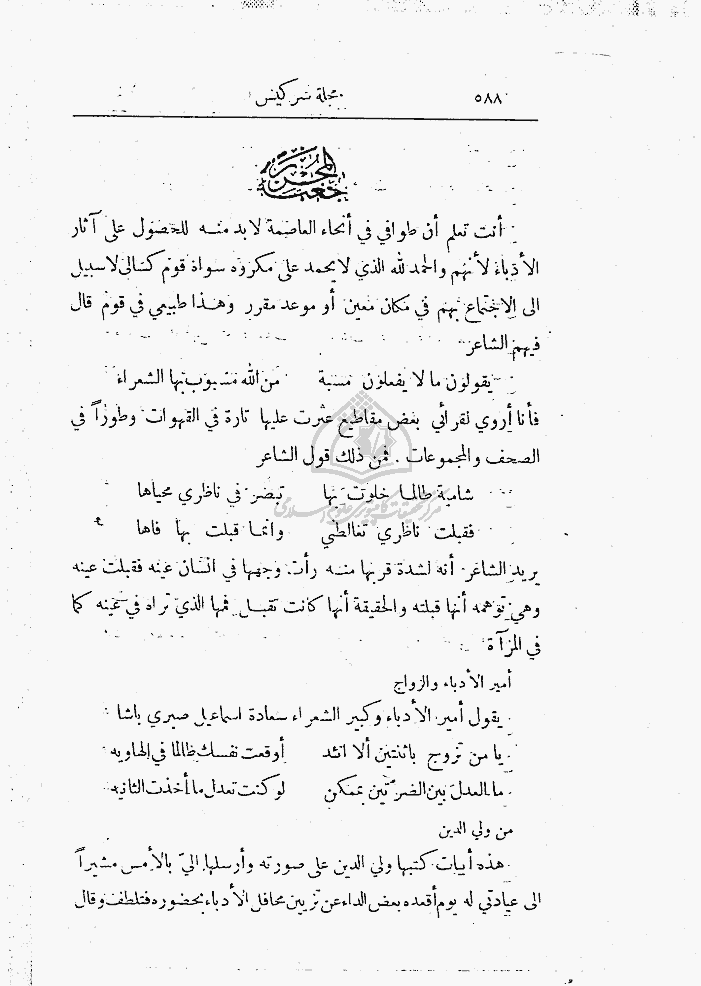 ٥٨٨ مجلة سركيس
جعبة المحرر
أنت تعلم أن طوافي في أنحاء العاصمة لابد منه للحصول على آثار
الأدباء لأنهم والحمد لله الذي لايحمد على مكروه سواه قوم كسالى لاسبيل
الى الاجتماع بهم في مكان معين أو موعد مقرر وهذا طبيعي في قوم قال
فيهم الشاعر
يقولون ما لا يفعلون مسبة من الله مسبوب بها الشعراء
فأنا أروي لقرائي بعض مقاطيع عثرت عليها تارة في القهوات وطوراً في
الصحف والمجموعات . فمن ذلك قول الشاعر
شامية طالما خلوت بها تبصر في ناظري محياها
فقبلت ناظري تغالطني وانما قبلت بها فاها
يريد الشاعر أنه لشدة قربها منه رأت وجهها في انسان عينه فقبلت عينه
وهي توهمه أنها قبلته والحقيقة أنها كانت تقبل فمها الذي تراه في عينه كما
في المرآة
أمير الأدباء والزواج
يقول أمير الأدباء وكبير الشعراء سعادة اسماعيل صبري باشا
يا من تزوج باثنتين ألا اتئد أوقعت نفسك ظالما في الهاويه
ما العدل بين الضرتين بممكن لو كنت تعدل ما أخذت الثانيه
من ولي الدين
هذه أبيات كتبها ولي الدين على صورته وأرسلها اليّ بالأمس مشيراً
الى عيادتي له يوم أقعده بعض الداء عن تزيين محافل الأدباء بحضوره فتلطف وقال